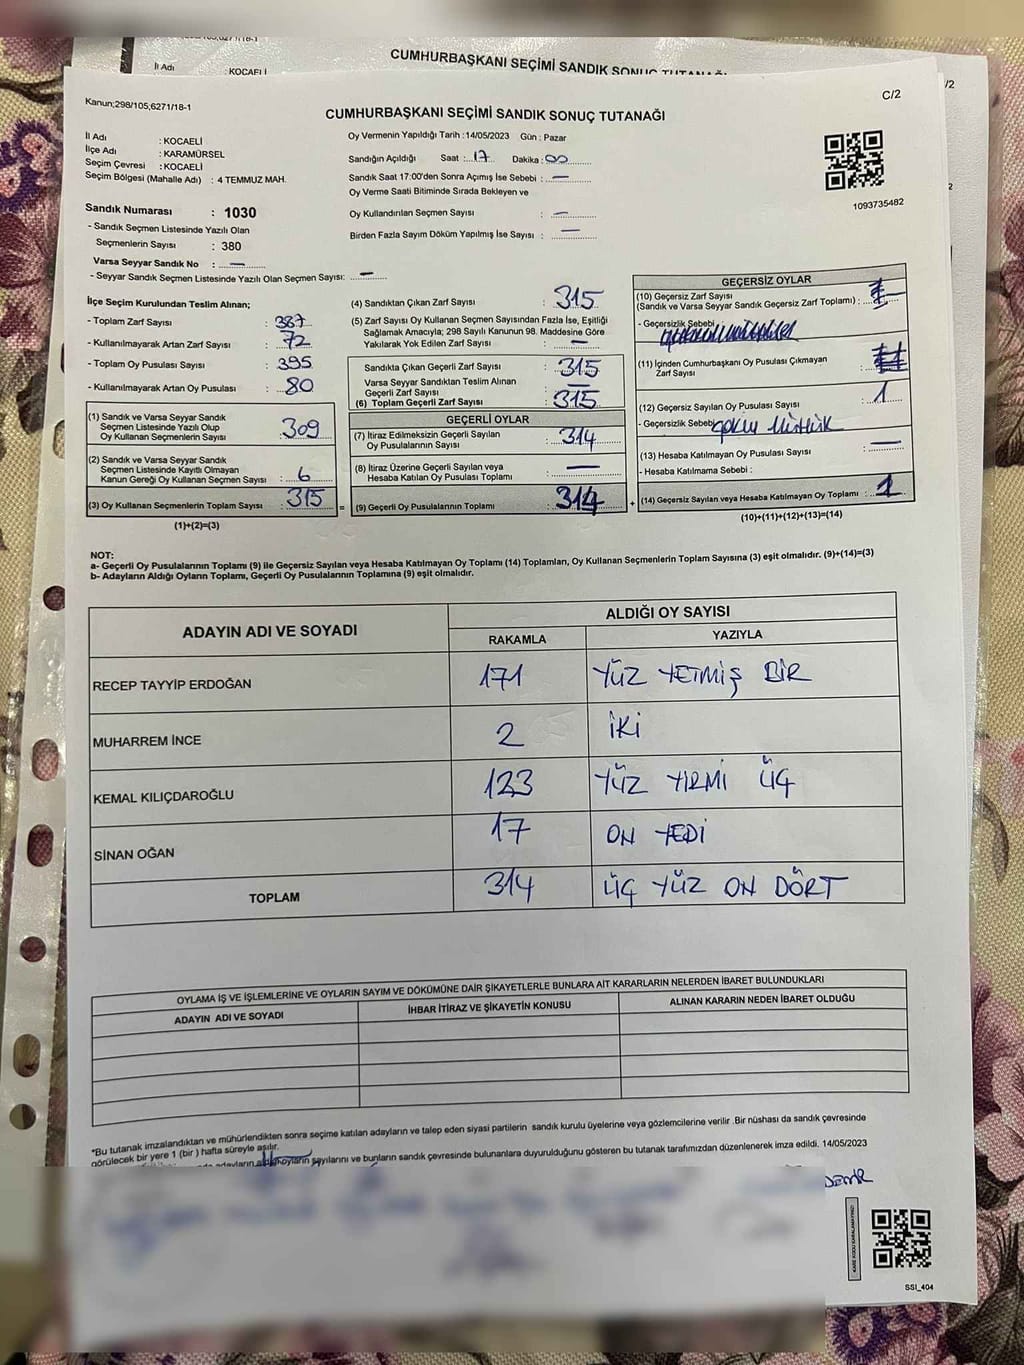 CUMHURBAŞKANI SEÇİMİ SANDIK SONUÇ TUTANAĞI
İl Adı : KOCAELİ
/2
Kanun;298/105;6271/18-1
C/2
CUMHURBAŞKANI SEÇİMİ SANDIK SONUÇ TUTANAĞI
İl Adı : KOCAELİ
İlçe Adı : KARAMÜRSEL
Seçim Çevresi : KOCAELİ
Seçim Bölgesi (Mahalle Adı) : 4 TEMMUZ MAH.
Sandık Numarası : 1030
- Sandık Seçmen Listesinde Yazılı Olan
Seçmenlerin Sayısı : 380
Varsa Seyyar Sandık No : —
- Seyyar Sandık Seçmen Listesinde Yazılı Olan Seçmen Sayısı: —
Oy Vermenin Yapıldığı Tarih :14/05/2023 Gün : Pazar
Sandığın Açıldığı Saat : 17 Dakika : 00
Sandık Saat 17:00'den Sonra Açımış İse Sebebi : —
Oy Verme Saati Bitiminde Sırada Bekleyen ve
Oy Kullandırılan Seçmen Sayısı : —
Birden Fazla Sayım Döküm Yapılmış İse Sayısı : —
1093735482
İlçe Seçim Kurulundan Teslim Alınan;
- Toplam Zarf Sayısı : 387
- Kullanılmayarak Artan Zarf Sayısı : 72
- Toplam Oy Pusulası Sayısı : 395
- Kullanılmayarak Artan Oy Pusulası : 80
(1) Sandık ve Varsa Seyyar Sandık
Seçmen Listesinde Yazılı Olup
Oy Kullanan Seçmenlerin Sayısı : 309
(2) Sandık ve Varsa Seyyar Sandık
Seçmen Listesinde Kayıtlı Olmayan
Kanun Gereği Oy Kullanan Seçmen Sayısı : 6
(3) Oy Kullanan Seçmenlerin Toplam Sayısı : 315
(1)+(2)=(3)
(4) Sandıktan Çıkan Zarf Sayısı : 315
(5) Zarf Sayısı Oy Kullanan Seçmen Sayısından Fazla İse, Eşitliği
Sağlamak Amacıyla; 298 Sayılı Kanunun 98. Maddesine Göre
Yakılarak Yok Edilen Zarf Sayısı : —
Sandıkta Çıkan Geçerli Zarf Sayısı : 315
Varsa Seyyar Sandıktan Teslim Alınan
Geçerli Zarf Sayısı : —
(6) Toplam Geçerli Zarf Sayısı : 315
GEÇERLİ OYLAR
(7) İtiraz Edilmeksizin Geçerli Sayılan
Oy Pusulalarının Sayısı : 314
(8) İtiraz Üzerine Geçerli Sayılan veya
Hesaba Katılan Oy Pusulası Toplamı : —
= (9) Geçerli Oy Pusulalarının Toplamı : 314 +
GEÇERSİZ OYLAR
(10) Geçersiz Zarf Sayısı
(Sandık ve Varsa Seyyar Sandık Geçersiz Zarf Toplamı) :
- Geçersizlik Sebebi :
(11) İçinden Cumhurbaşkanı Oy Pusulası Çıkmayan
Zarf Sayısı :
(12) Geçersiz Sayılan Oy Pusulası Sayısı : 1
- Geçersizlik Sebebi :
(13) Hesaba Katılmayan Oy Pusulası Sayısı : —
- Hesaba Katılmama Sebebi :
(14) Geçersiz Sayılan veya Hesaba Katılmayan Oy Toplamı : 1
(10)+(11)+(12)+(13)=(14)
NOT:
a- Geçerli Oy Pusulalarının Toplamı (9) ile Geçersiz Sayılan veya Hesaba Katılmayan Oy Toplamı (14) Toplamları, Oy Kullanan Seçmenlerin Toplam Sayısına (3) eşit olmalıdır. (9)+(14)=(3)
b- Adayların Aldığı Oyların Toplamı, Geçerli Oy Pusulalarının Toplamına (9) eşit olmalıdır.
ADAYIN ADI VE SOYADI ALDIĞI OY SAYISI
RAKAMLA YAZIYLA
RECEP TAYYİP ERDOĞAN 171 YÜZ YETMİŞ BİR
MUHARREM İNCE 2 İKİ
KEMAL KILIÇDAROĞLU 123 YÜZ YİRMİ ÜÇ
SİNAN OĞAN 17 ON YEDİ
TOPLAM 314 ÜÇ YÜZ ON DÖRT
OYLAMA İŞ VE İŞLEMLERİNE VE OYLARIN SAYIM VE DÖKÜMÜNE DAİR ŞİKAYETLERLE BUNLARA AİT KARARLARIN NELERDEN İBARET BULUNDUKLARI
ADAYIN ADI VE SOYADI İHBAR İTİRAZ VE ŞİKAYETİN KONUSU ALINAN KARARIN NEDEN İBARET OLDUĞU
*Bu tutanak imzalandıktan ve mühürlendikten sonra seçime katılan adayların ve talep eden siyasi partilerin sandık kurulu üyelerine veya gözlemcilerine verilir .Bir nüshası da sandık çevresinde
görülecek bir yere 1 (bir ) hafta süreyle asılır.
adayların aldığı oyların sayılarını ve bunların sandık çevresinde bulunanlara duyurulduğunu gösteren bu tutanak tarafımızdan düzenlenerek imza edildi. 14/05/2023
SSI_404